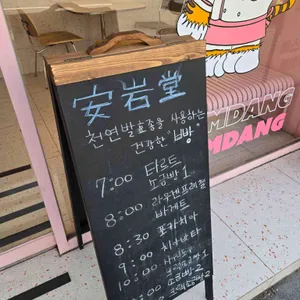 安岩堂
천연발효종을 사용하는
건강한 빵빵
7:00 타르트
소금빵 1
8:00 라우겐프레첼
바게트
8:30 포카치아
9:00 치아바타
10:00
소금빵 2
MDANG
MDANG